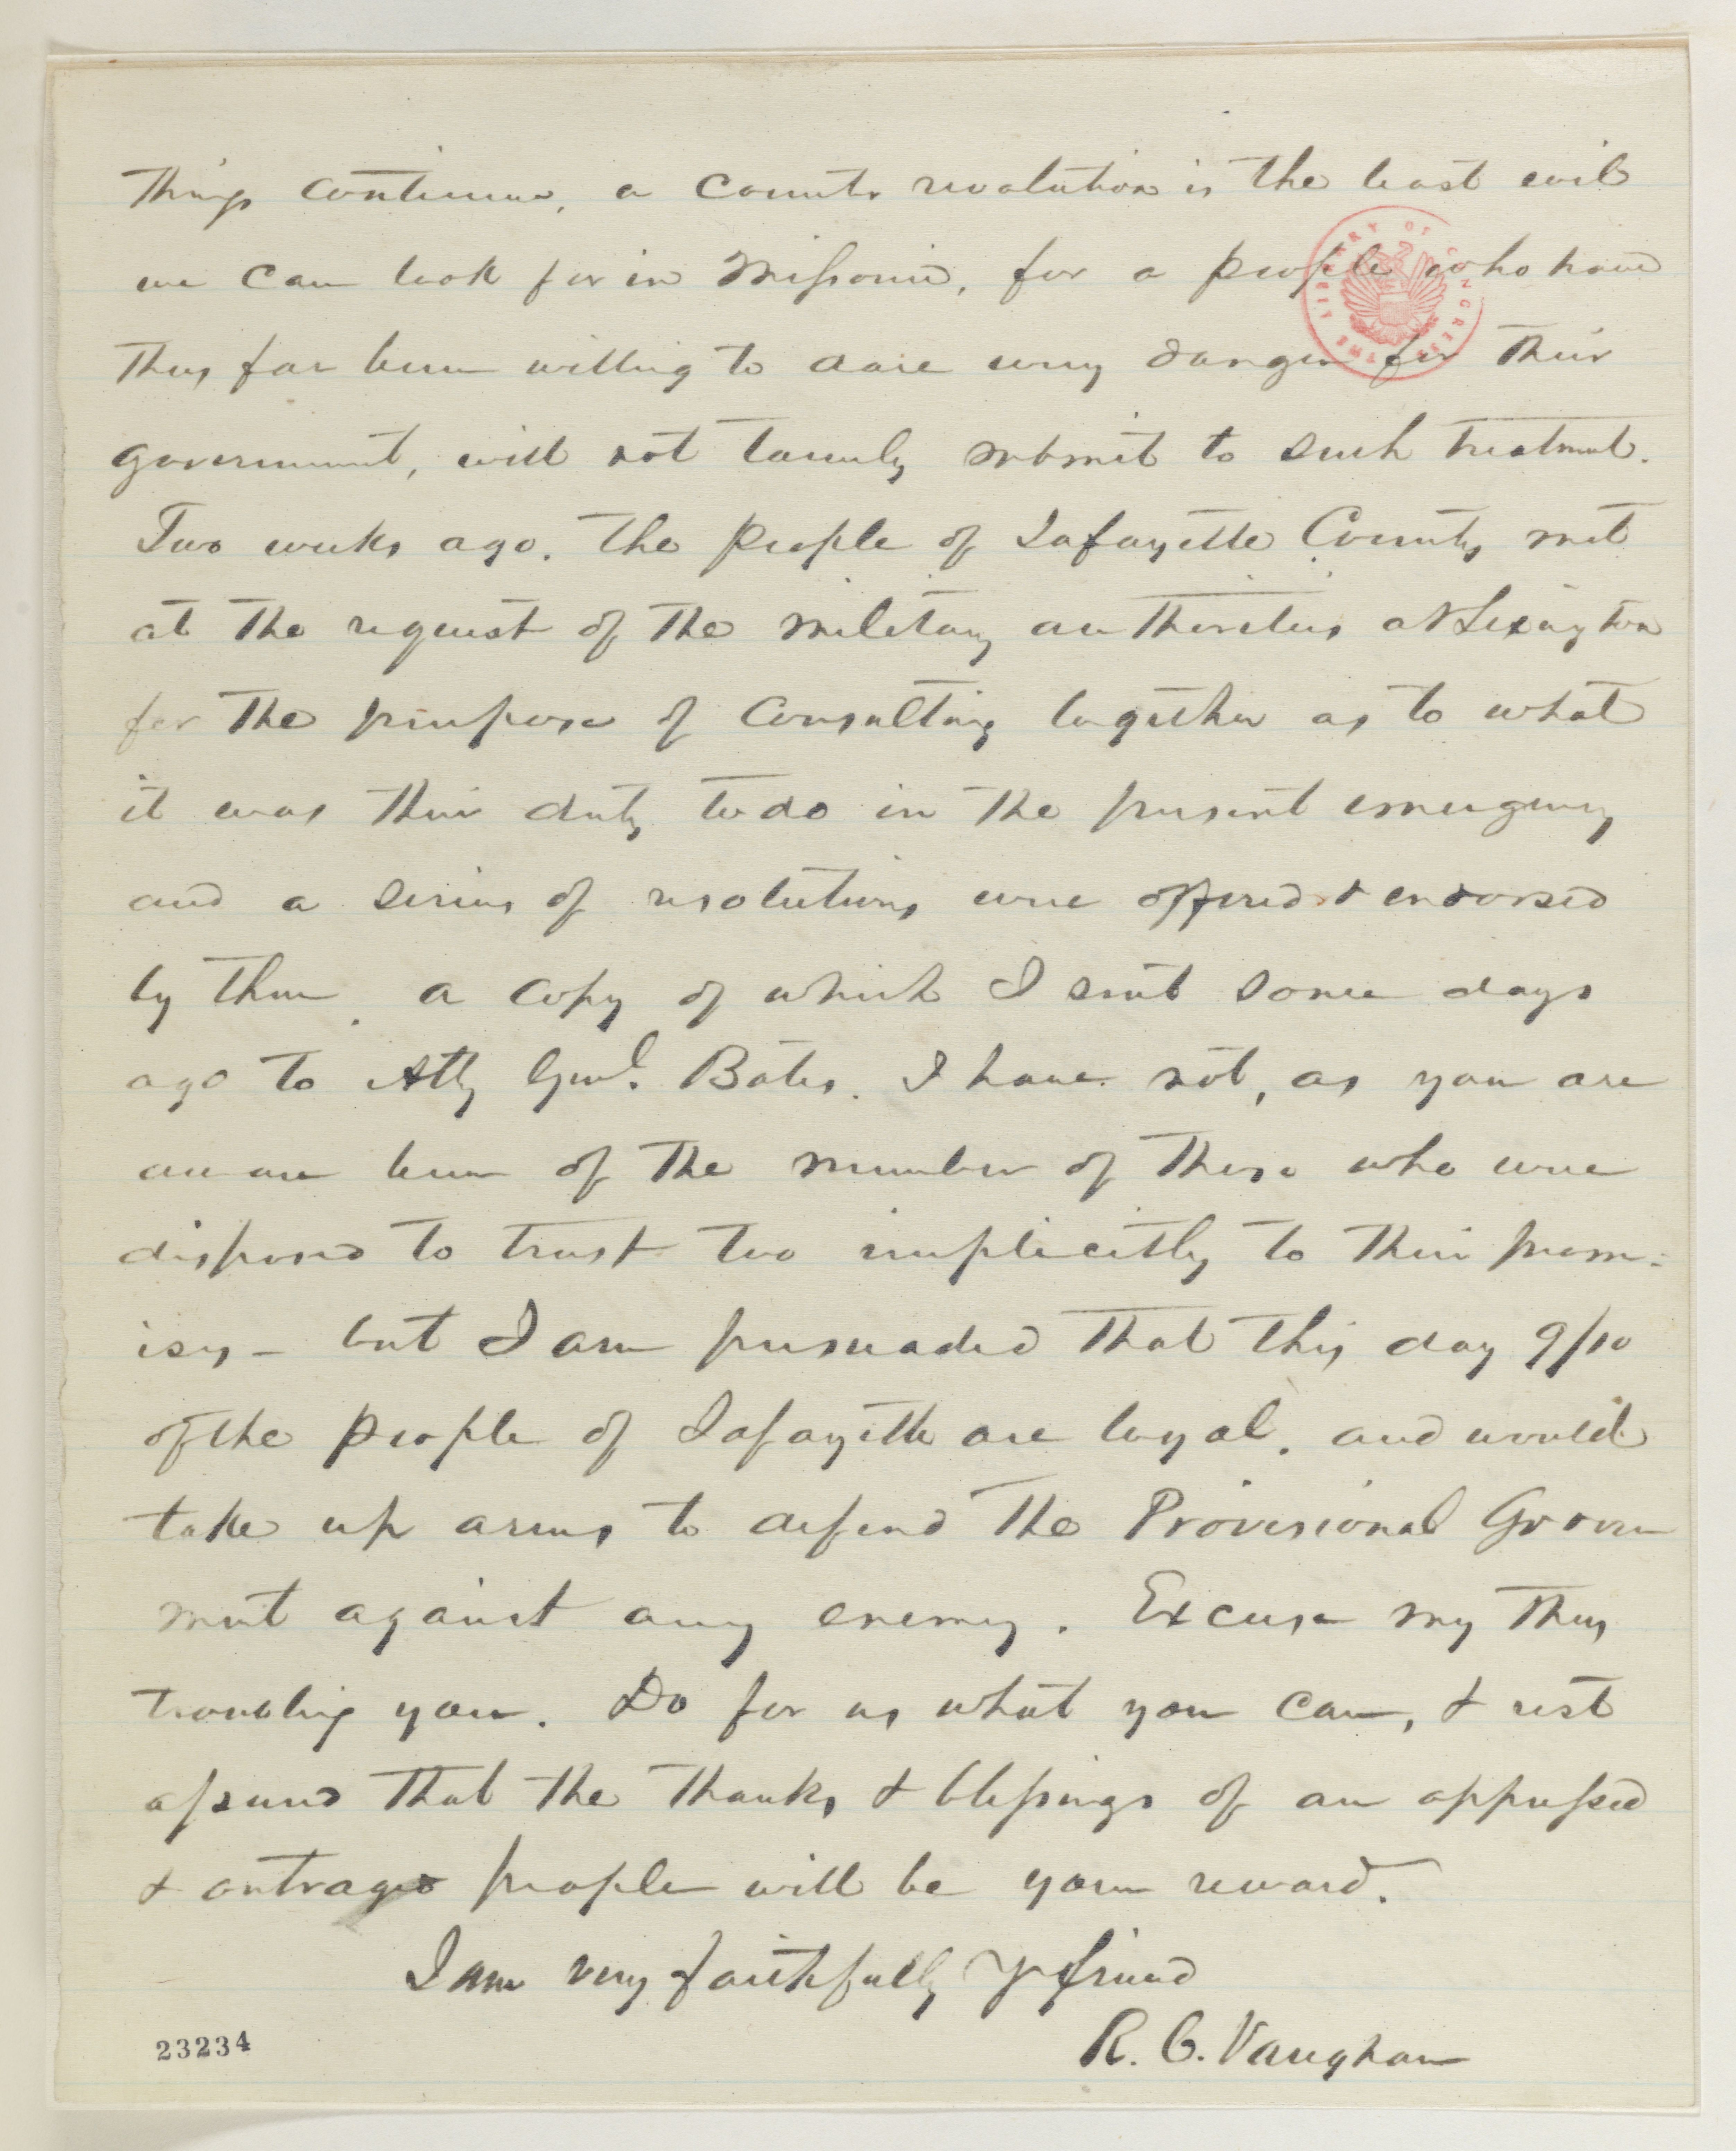 things continue, a counter revolution is the least evil
we can look for in Missouri, for a people who have
thus far been willing to dare every danger for their
government, will not tamely submit to such treatment.
Two weeks ago. the people of Lafayette County met
at the request of the military authorities at Lexington
for the purpose of consulting together as to what
it was their duty to do in the present emergency
and a series of resolutions were offered & endorsed
by them. a copy of which I sent some days
ago to Atty Genl. Bates. I have not, as you are
aware been of the number of those who were
disposed to trust too implicitly to their prom-
ises - but I am persuaded that this day 9/10
of the people of Lafayette are loyal. and would
take up arms to defend the Provisional Govern
ment against any enemy. Excuse my thus
troubling you. Do for us what you can, & rest
assured that the thanks & blessings of an oppressed
& outraged people will be your reward.
I am very faithfully Yr friend
R. C. Vaughan
23234
THE LIBRARY OF CONGRESS